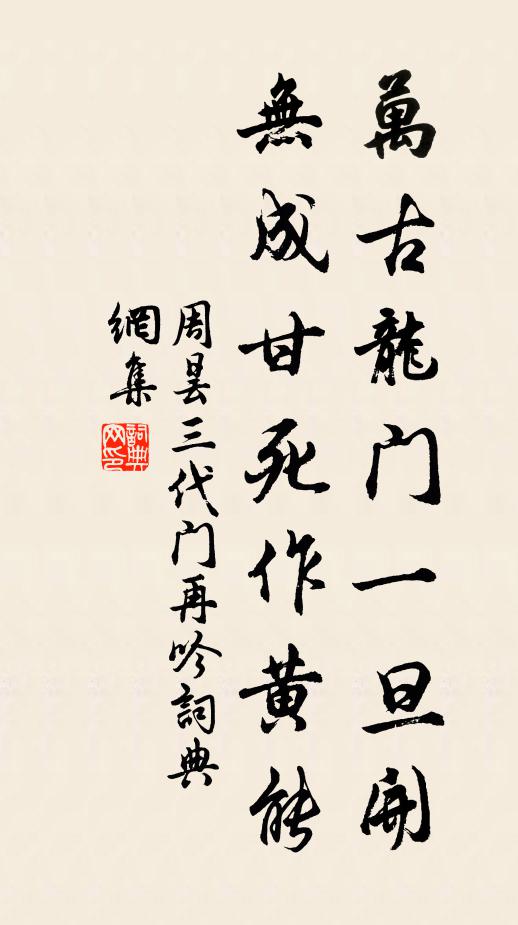 萬古龍门一旦開
無成甘死作黄能
周曇三代门再吟詞典
網集
詞典
网印